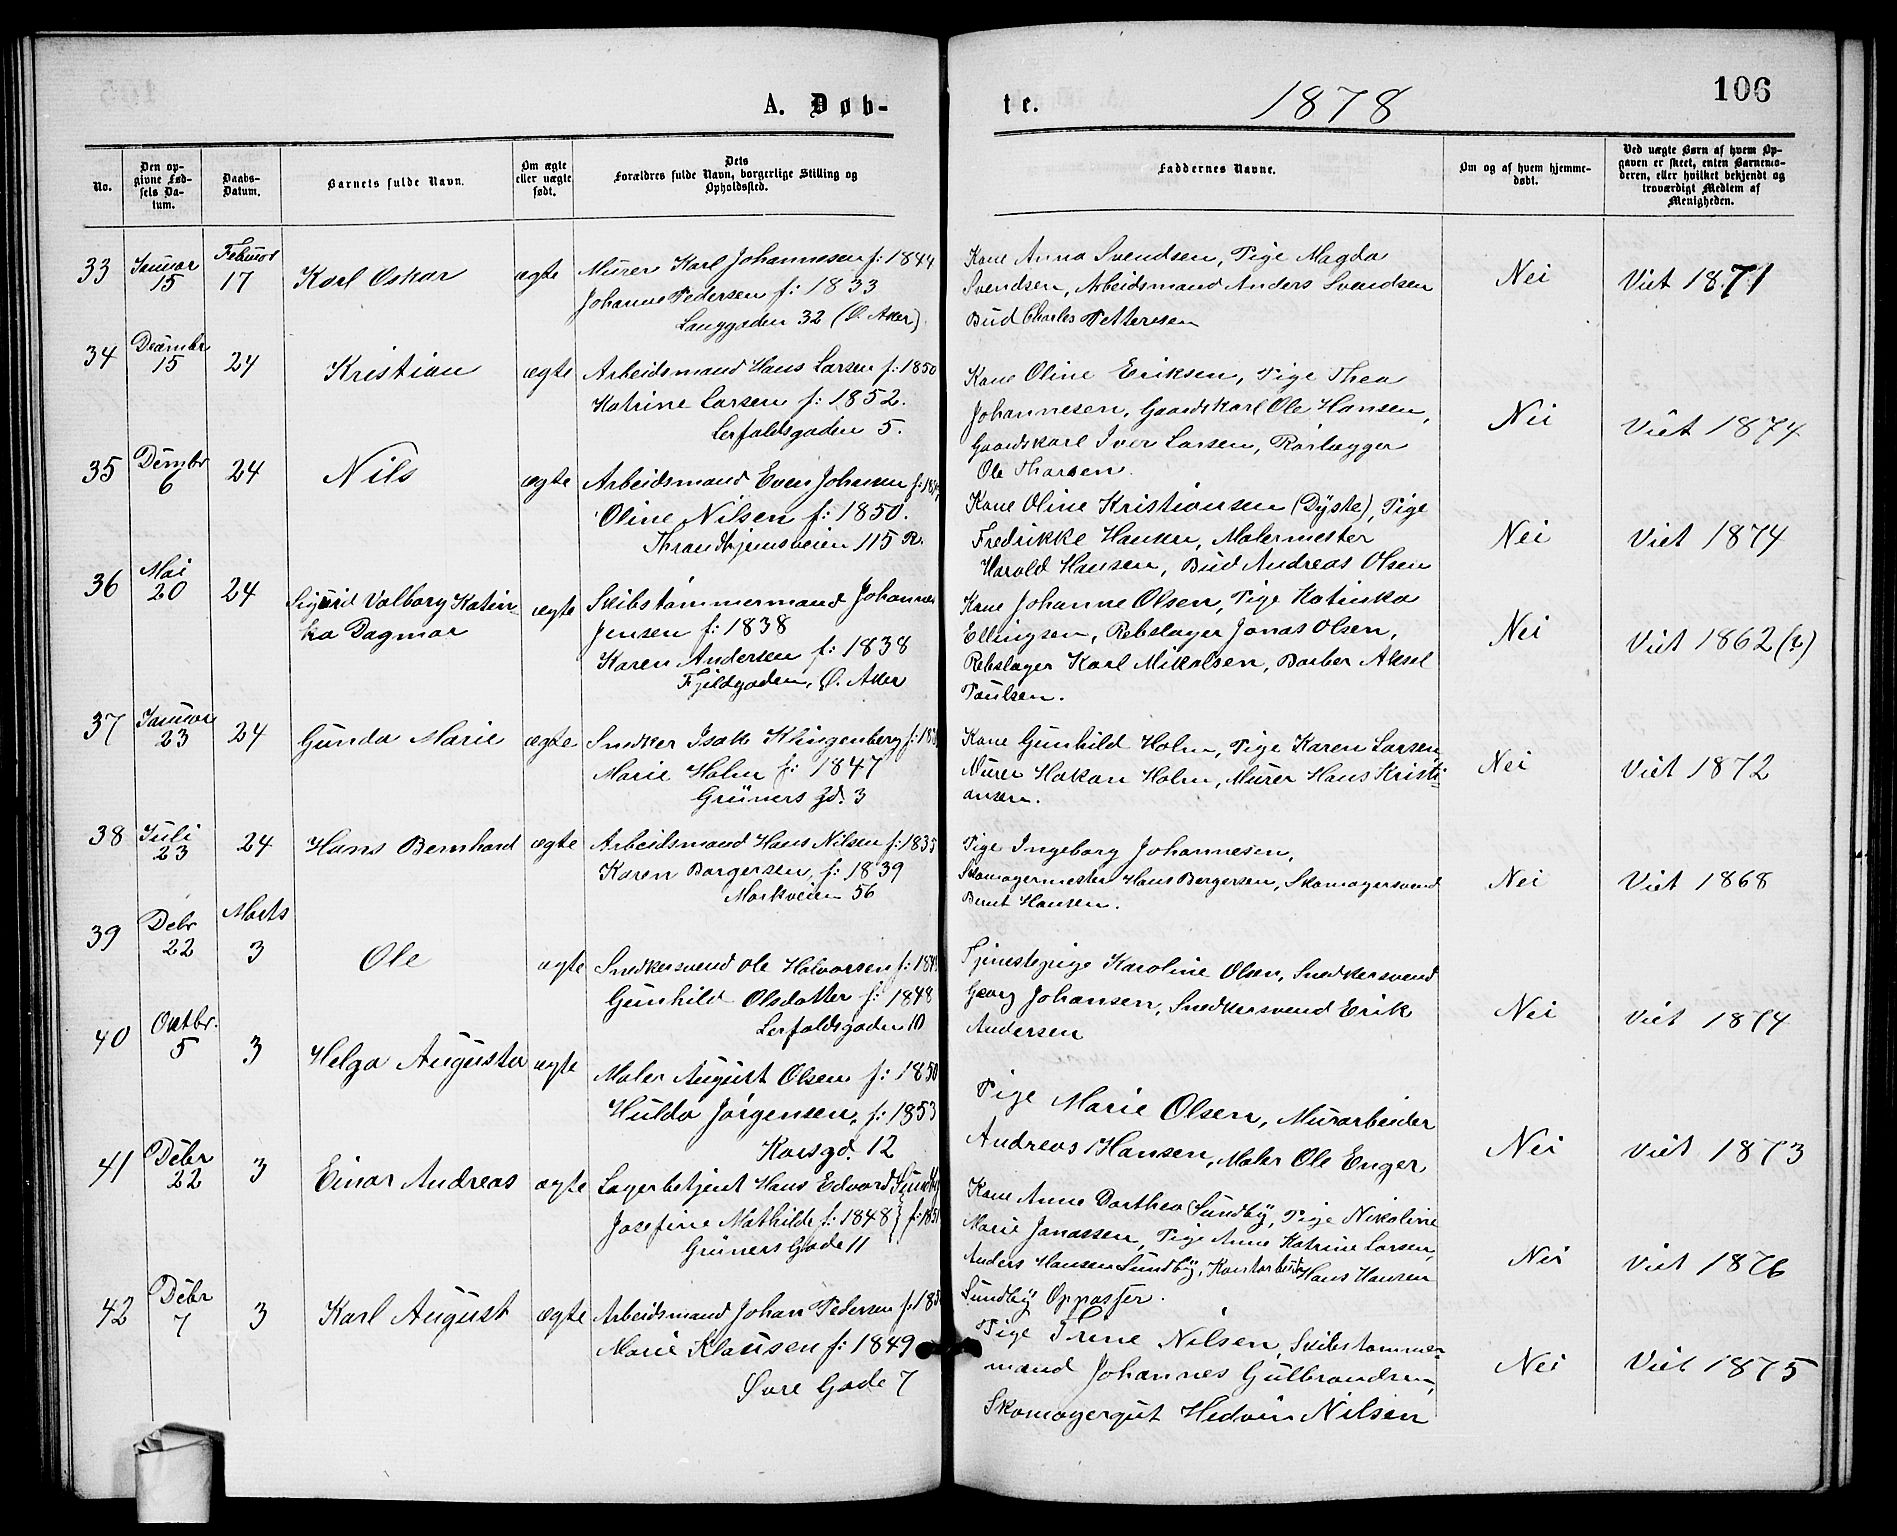 A. Døb-
te.
1878
106
No.
Den op-
givne Fød-
sels Da-
tum.
Daabs-
Datum.
Barnets fulde Navn.
Om ægte
eller uægte
født.
Dets
Forældres fulde Navn, borgerlige Stilling og
Opholdssted.
Faddernes Navne.
Om og af hvem hjemme-
døbt.
Ved uægte Børn af hvem Op-
gaven er skeet, enten Barnemo-
deren, eller hvilket bekjendt og
troværdigt Medlem af
Menigheden.
33
Januar
15
Februar
17
Karl Oskar
ægte
Murer Karl Johannesen f: 1844
Johanne Pedersen f: 1833
Langgaden 32 (Ø. Aker).
Kone Anna Svendsen, Pige Magda
Svendsen, Arbeidsmand Anders Svendsen
Bud Charles Pettersen
Nei
Viet 1871
34
Decembr
15
24
Kristian
ægte
Arbeidsmand Hans Larsen f: 1850
Katrine Larsen f: 1852.
Lerfaldsgaden 5.
Kone Oline Eriksen, Pige Thea
Johannesen, Gaardskarl Ole Hansen,
Gaardskarl Iver Larsen, Rørlægger
Ole Thorsen.
Nei
Viet 1874
35
Dcmbr
6
24
Nils
ægte
Arbeidsmand Even Johansen
Oline Nilsen f: 1850.
Throndhjemsveien 115 R.
Kone Oline Kristiansen (Dyste), Pige
Fredrikke Hansen, Malermester
Harald Hansen, Bud Andreas Olsen
Nei
Viet 1874
36
Mai
20
24
Sigurd Valborg Katin-
ka Dagmar
ægte
Skibstømmermand Johannes
Jensen f: 1838
Karen Andersen f: 1838
Fjeldgaden, Ø. Aker
Kone Johanne Olsen, Pige Katinka
Ellingsen, Rebslager Jonas Olsen,
Rebslager Karl Mikalsen, Barber Aksel
Paulsen.
Nei
Viet 1862 (?)
37
Januar
23
24
Gunda Marie
ægte
Snedker Isak Klingenberg
Marie Holm f: 1847
Grüners Gd. 3
Kone Gunhild Holm, Pige Karen Larsen,
Murer Hakan Holm, Murer Hans Kristi-
ansen.
Nei
Viet 1872
38
Juli
23
24
Hans Bernhard
ægte
Arbeidsmand Hans Nilsen f: 1835
Karen Borgersen, f: 1839
Markveien 56
Pige Ingeborg Johannesen,
Skomagermester Hans Bergersen, Skomagersvend
Bernt Hansen.
Nei
Viet 1868
39
Debr
22
Marts
3
Ole
ægte
Snedkersvend Ole Halvorsen
Gunhild Olsdatter f: 1848
Lerfaldsgaden 10
Tjenestepige Karoline Olsen, Snedkersvend
Georg Johansen, Snedkersvend Erik
Andersen
Nei
Viet 1874
40
Octbr.
5
3
Helga Augusta
ægte
Maler August Olsen f: 1850
Hulda Jørgensen, f: 1853
Korsgd. 12
Pige Marie Olsen, Murarbeider
Andreas Hansen, Maler Ole Enger
Nei
Viet 1873
41
Debr
22
3
Einar Andreas
ægte
Lagerbetjent Hans Edvard Sundby
Josefine Mathilde f: 1848 } f: 1851
Grüners Gade 11
Kone Anne Dorthea Sundby, Pige Nikoline
Marie Janassen, Pige Anne Katrine Larsen,
Anders Hansen Sundby, Hans Hansen
Sundby Oppasser.
Nei
Viet 1876
42
Debr
7
3
Karl August
ægte
Arbeidsmand Johan Pedersen
Marie Klausen f: 1849
Øvre Gade 7
Pige Trine Nilsen, Skibstømmer-
mand Johannes Gulbrandsen,
Skomagergut Nilsen
Nei
Viet 1875